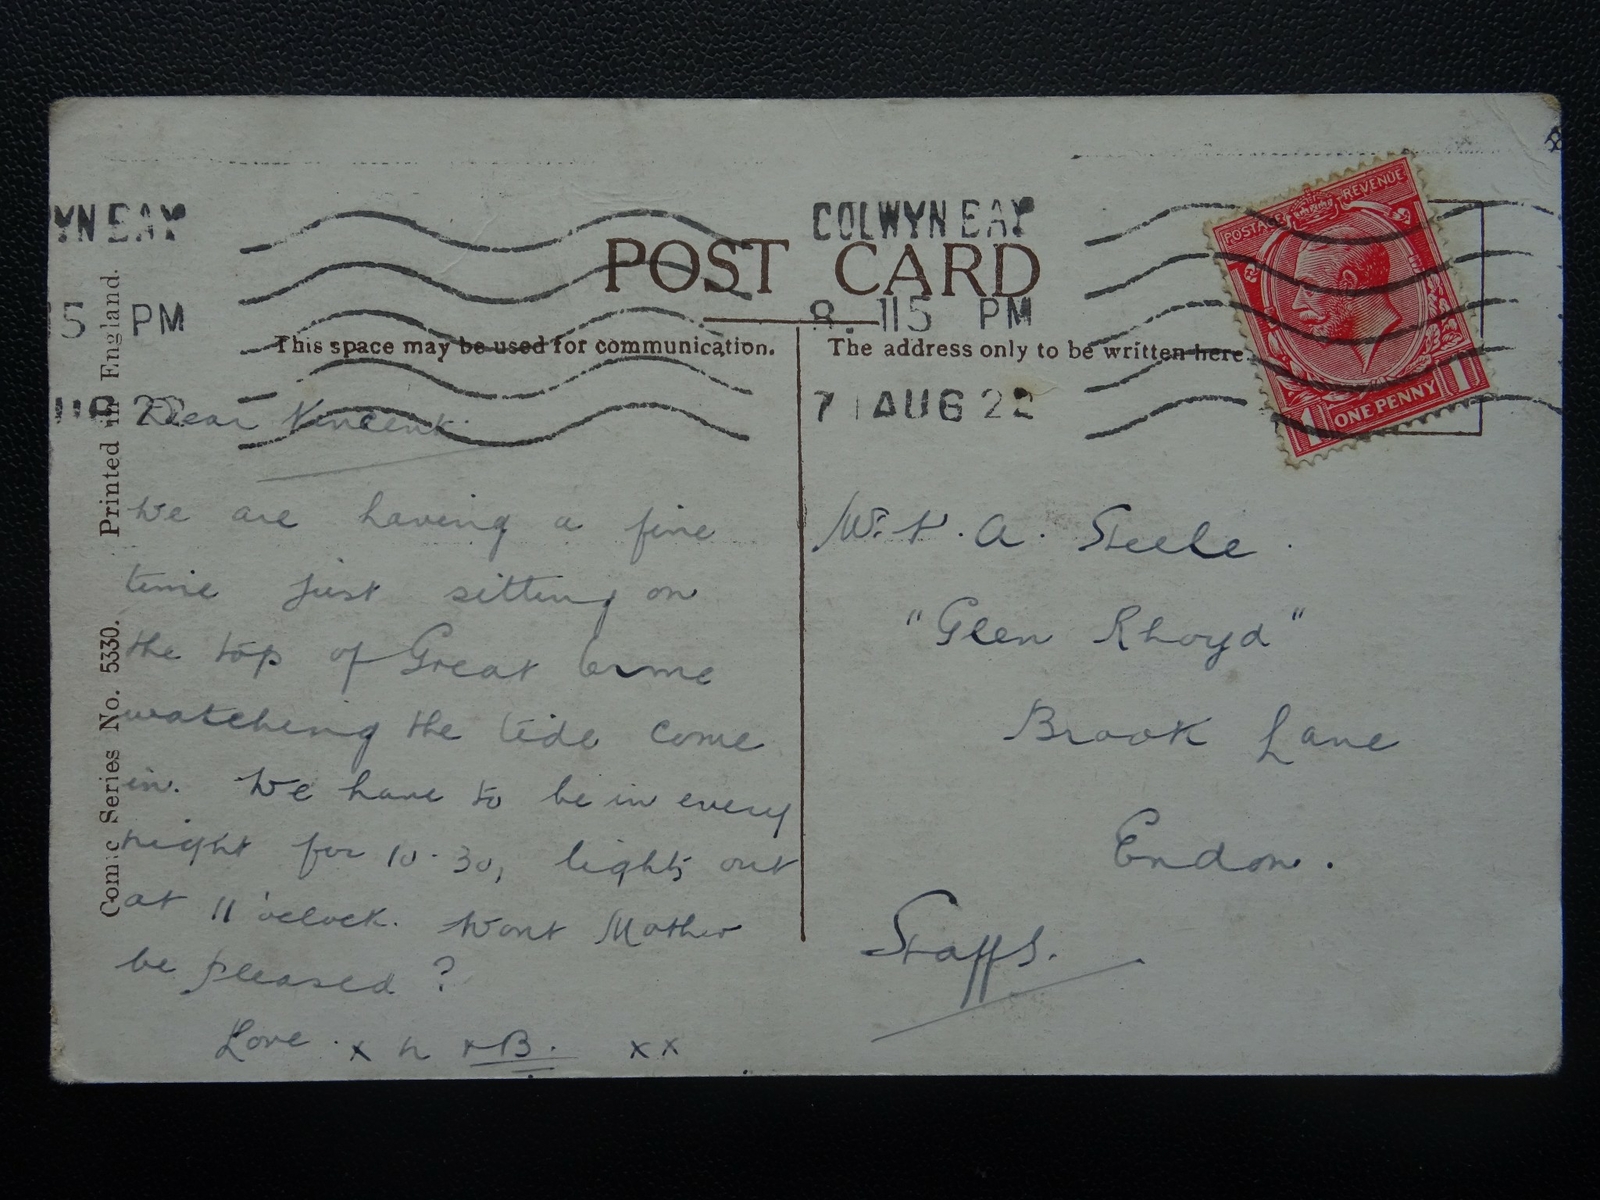 COLWYN BAY
8. 115 PM
7 AUG 22
YN BAY
15 PM
UG 22
POSTAGE REVENUE
ONE PENNY
1 1
POST CARD
This space may be used for communication.
The address only to be written here
Comic Series No. 5330. Printed in England.
Dear Vincent
We are having a fine
time just sitting on
the top of Great Orme
watching the tide come
in. We have to be in every
night for 10.30, lights out
at 11 o'clock. Wont Mother
be pleased?
Love x B. xx
A. Steele.
"Glen Rhoyd"
Brook Lane
Endon.
Staffs.